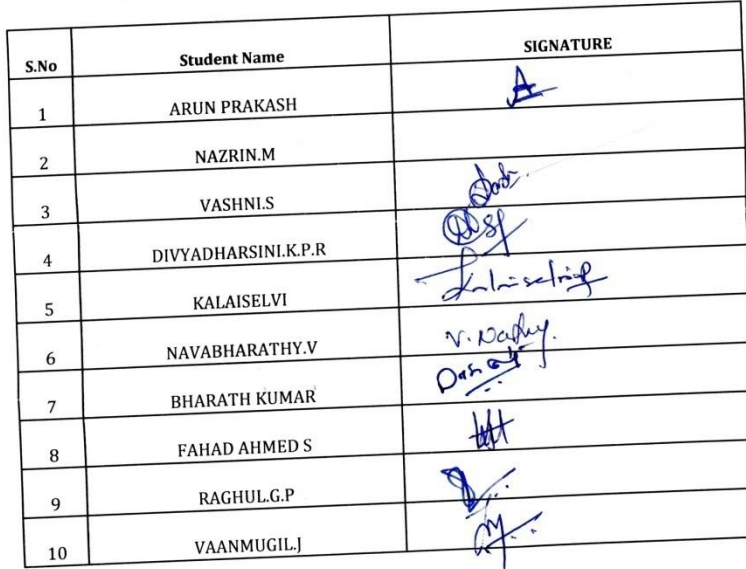 S.No Student Name SIGNATURE
1 ARUN PRAKASH A
2 NAZRIN.M
3 VASHNI.S
4 DIVYADHARSINI.K.P.R
5 KALAISELVI
6 NAVABHARATHY.V
7 BHARATH KUMAR
8 FAHAD AHMED S
9 RAGHUL.G.P
10 VAANMUGIL.J